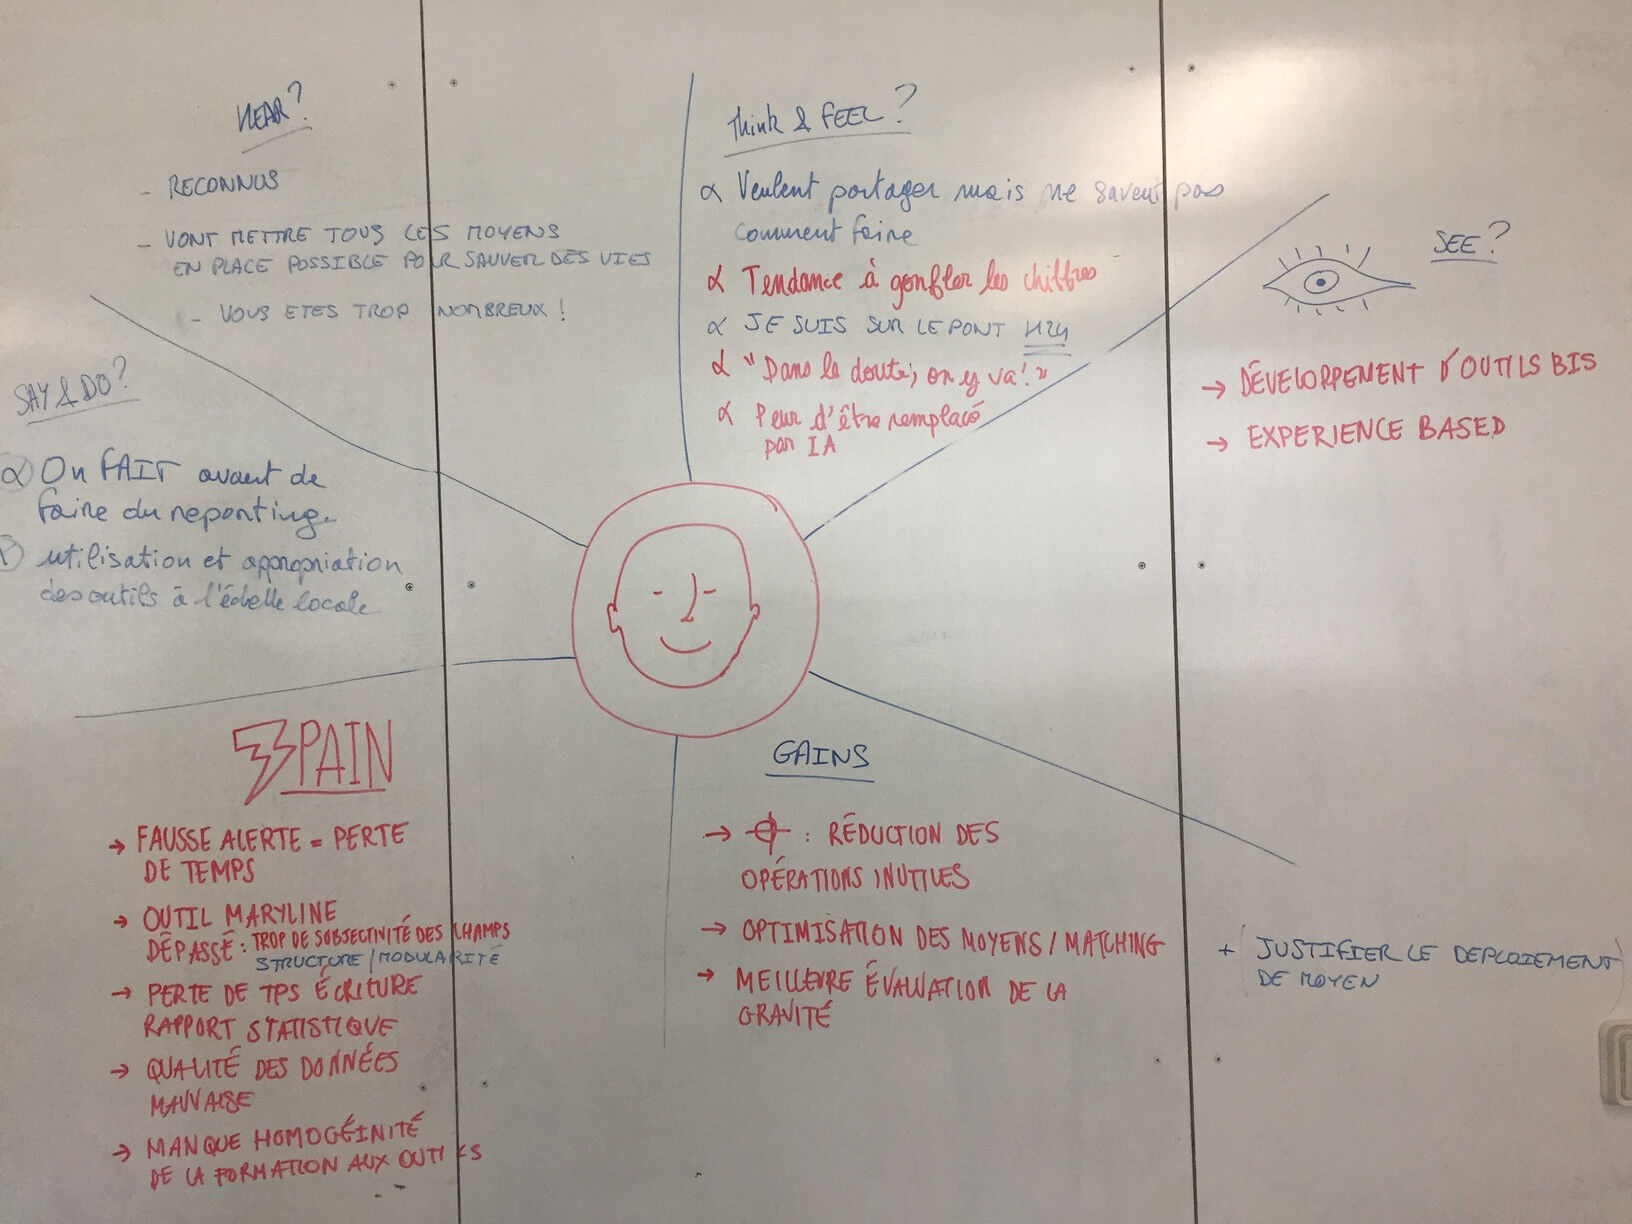 HEAR?
- RECONNUS
- VONT METTRE TOUS LES MOYENS
EN PLACE POSSIBLE POUR SAUVER DES VIES
- VOUS ETES TROP NOMBREUX !
Think & FEEL ?
α Veulent partager mais ne savent pas
comment faire
α Tendance à gonfler les chiffres
α JE SUIS SUR LE PONT H24
α "Dans le doute, on y va!"
α Peur d'être remplacé
par IA
SEE ?
→ DÉVELOPPEMENT D'OUTILS BIS
→ EXPERIENCE BASED
SAY & DO ?
α On FAIT avant de
faire du reporting.
utilisation et appropriation
des outils à l'échelle locale
PAIN
→ FAUSSE ALERTE = PERTE
DE TEMPS
→ OUTIL MARYLINE
DÉPASSÉ : TROP DE SUBJECTIVITÉ DES CHAMPS
STRUCTURE / MODULARITÉ
→ PERTE DE TPS ÉCRITURE
RAPPORT STATISTIQUE
→ QUALITÉ DES DONNÉES
MAUVAISE
→ MANQUE HOMOGÉINITÉ
DE LA FORMATION AUX OUTILS
GAINS
→ : RÉDUCTION DES
OPÉRATIONS INUTILES
→ OPTIMISATION DES MOYENS / MATCHING
→ MEILLEURE ÉVALUATION DE LA
GRAVITÉ
+ (JUSTIFIER LE DEPLOIEMENT
DE MOYEN)